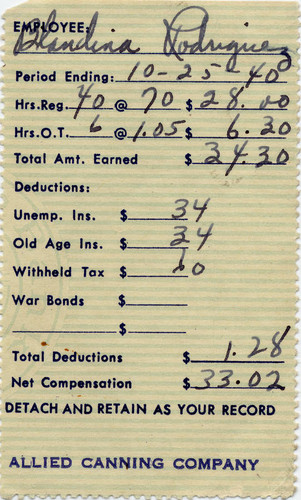 EMPLOYEE: Blandina Rodriguez
Period Ending: 10-25-40
Hrs.Reg. 40 @ 70 $ 28.00
Hrs.O.T. 6 @ 1.05 $ 6.30
Total Amt. Earned $ 34.30
Deductions:
Unemp. Ins. $ 34
Old Age Ins. $ 34
Withheld Tax $ 60
War Bonds $
$
Total Deductions $ 1.28
Net Compensation $ 33.02
DETACH AND RETAIN AS YOUR RECORD
ALLIED CANNING COMPANY